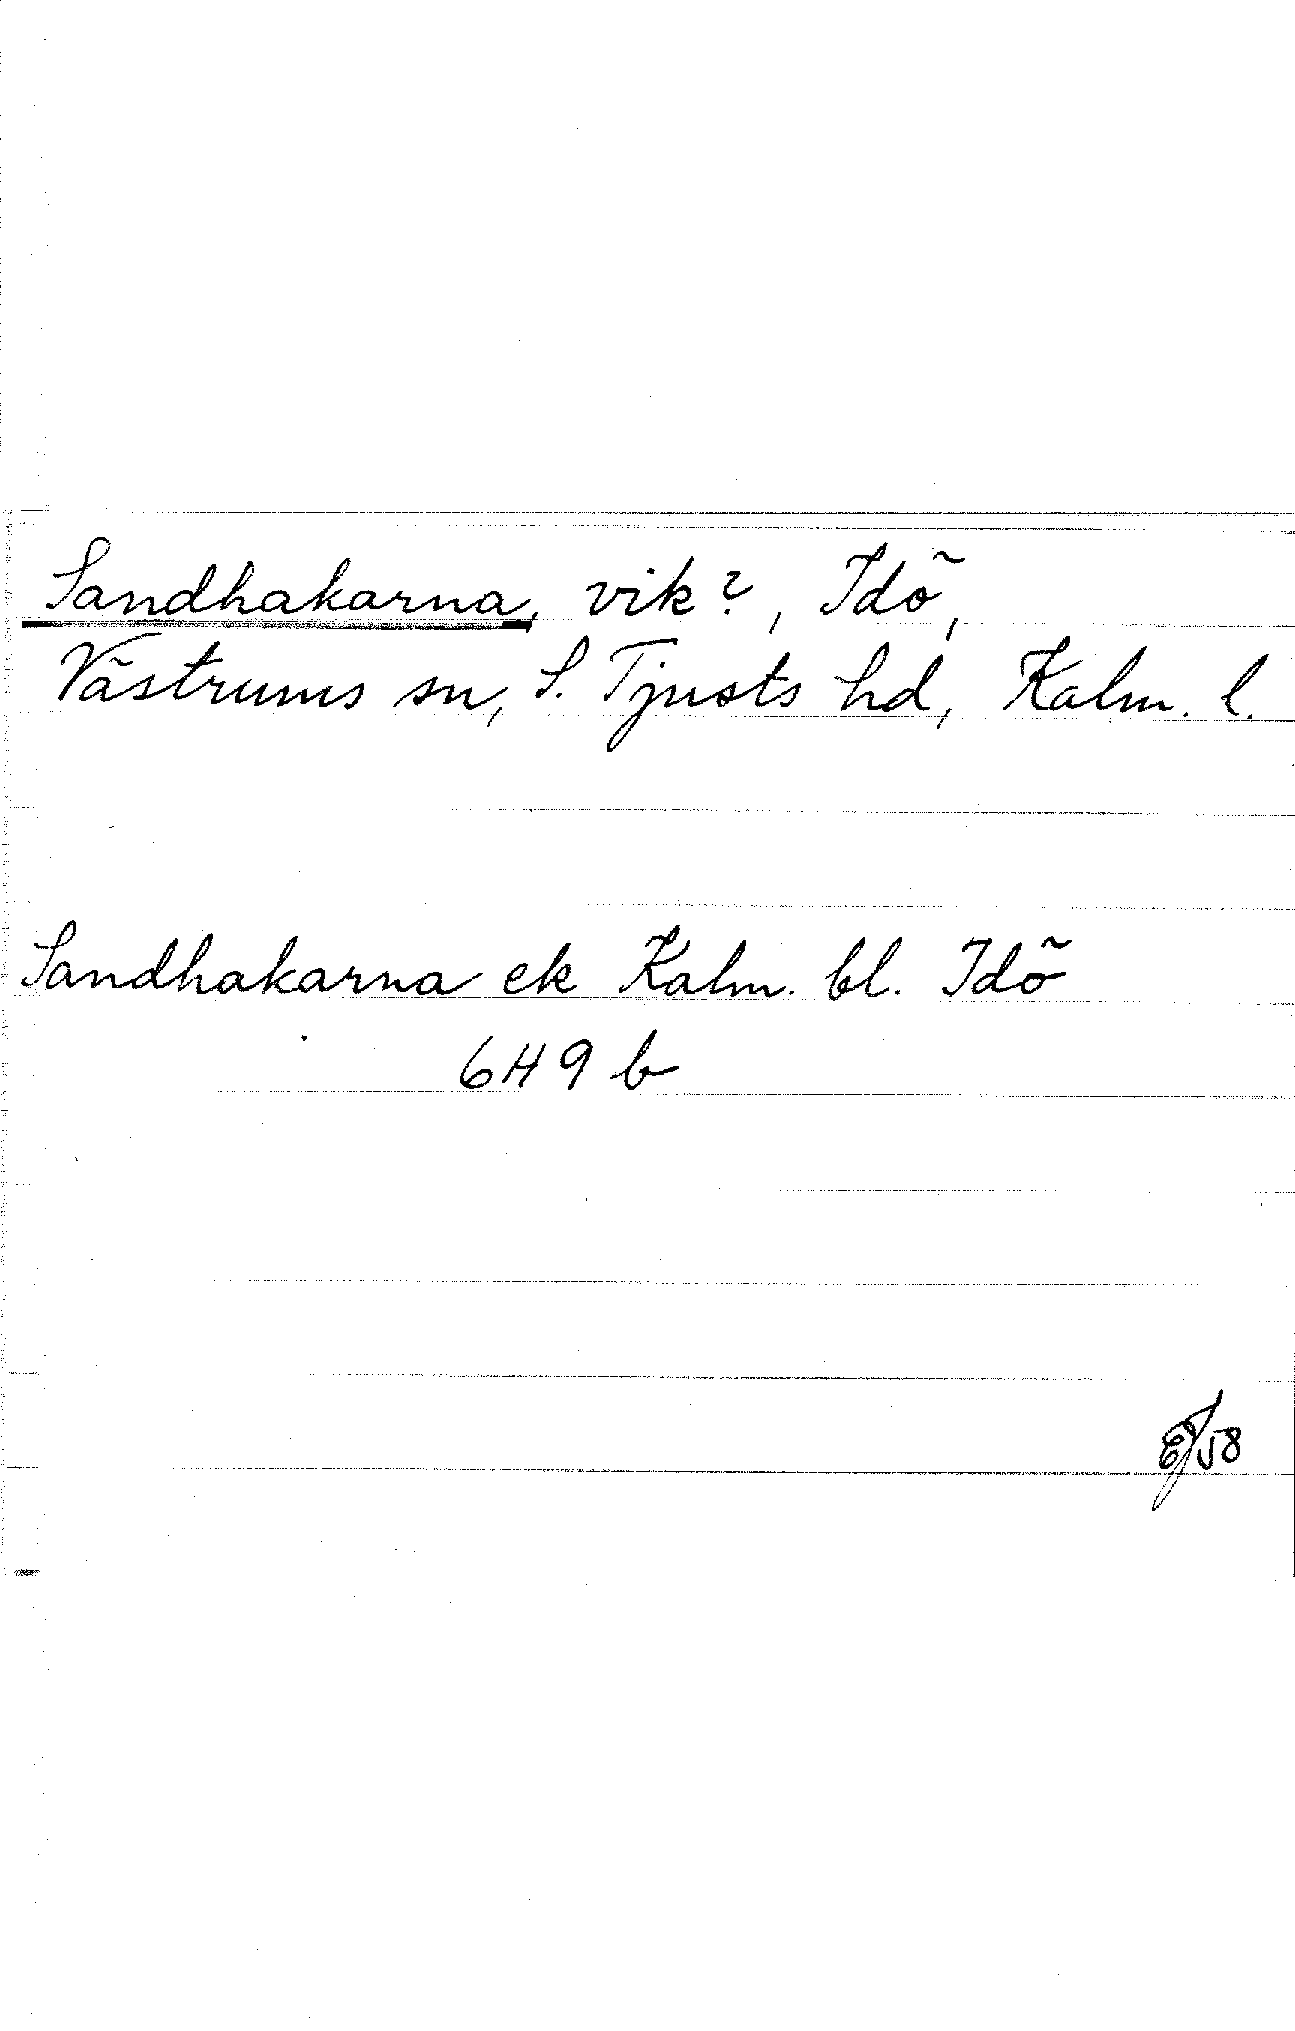 Sandhakarna, vik?, Idö,
Västrums sn, S. Tjusts hd, Kalm. l.
Sandhakarna ek Kalm. bl. Idö
6H9 b
58